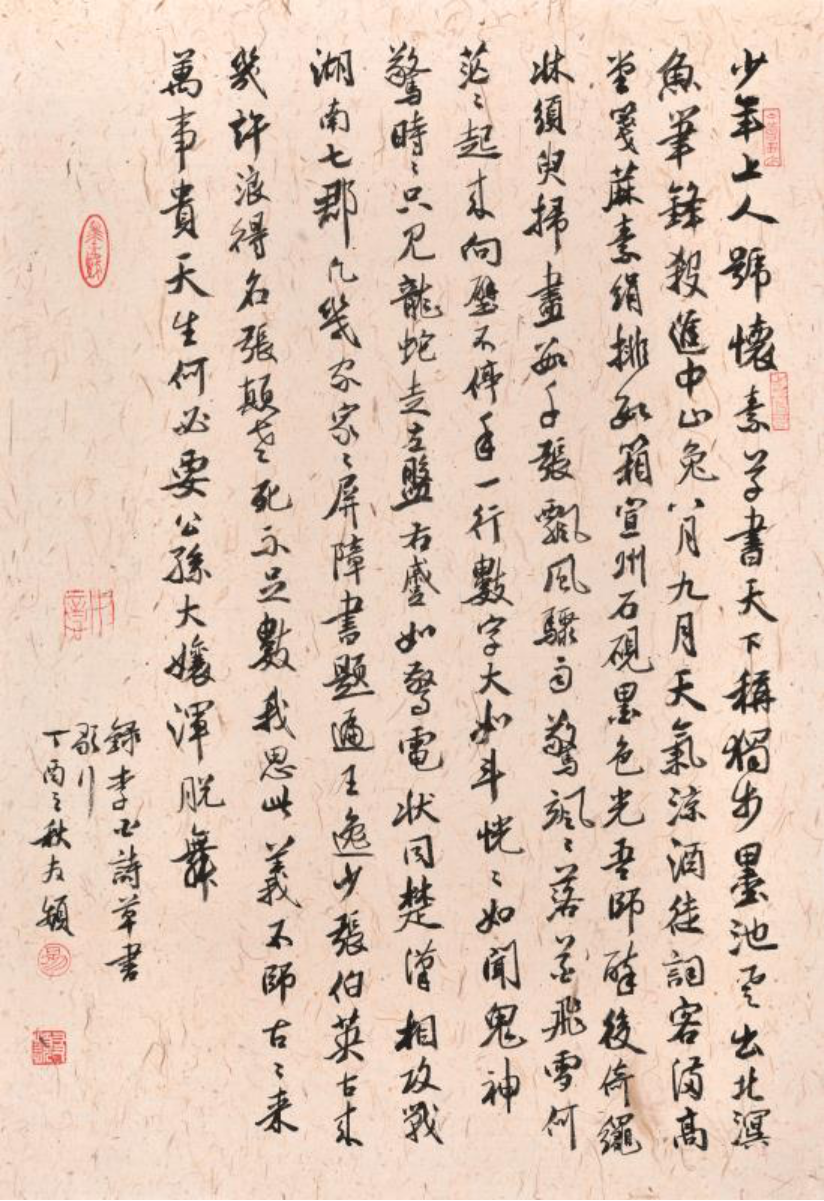 少年上人號懷素草書天下稱獨步墨池飛出北溟
魚筆鋒殺進中山兔八月九月天氣涼酒徒詞客滿高
堂箋蔴素絹排數箱宣州石硯墨色光吾師醉後倚繩
牀須臾掃盡數千張飄風驟雨驚颯〻落花飛雪何
茫〻起來向壁不停手一行數字大如斗恍〻如聞鬼神
驚時〻只見龍蛇走左盤右蹙如驚電狀同楚漢相攻戰
湖南七郡凡幾家家〻屏障書題遍王逸少張伯英古來
幾許浪得名張顛老死不足數我思此義不師古〻來
萬事貴天生何必要公孫大孃渾脫舞
錄李白詩草書
歌行
丁酉之秋